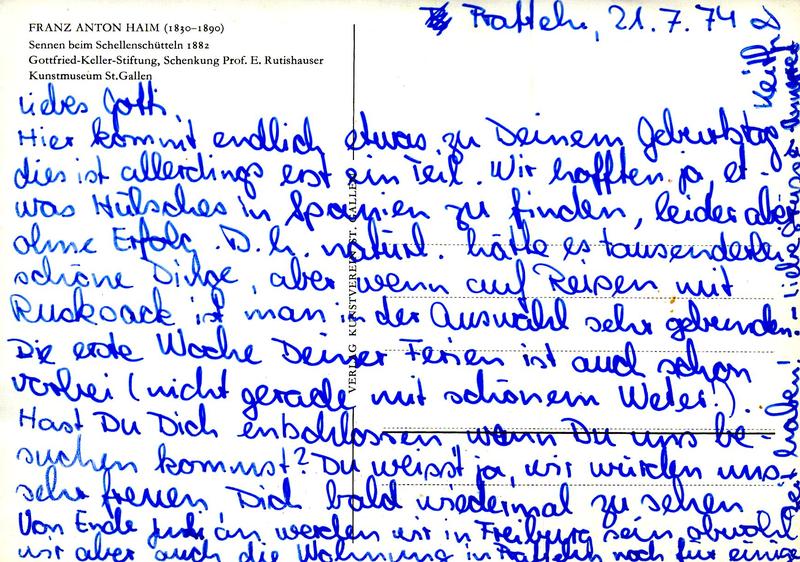 FRANZ ANTON HAIM (1830–1890)
Sennen beim Schellenschütteln 1882
Gottfried-Keller-Stiftung, Schenkung Prof. E. Rutishauser
Kunstmuseum St.Gallen
VERLAG KUNSTVEREIN ST. GALLEN
Pratteln, 21.7.74
Liebes Gotti,
Hier kommt endlich etwas zu Deinem Geburtstag
dies ist allerdings erst ein Teil. Wir hofften ja, et-
was Hübsches in Spanien zu finden, leider aber
ohne Erfolg. D.h. natürl. hätte es tausenderlei
schöne Dinge, aber wenn auf Reisen mit
Rucksack ist man in der Auswahl sehr gebunden.
Die erste Woche Deiner Ferien ist auch schon
vorbei (nicht gerade mit schönem Wetter!).
Hast Du Dich entschlossen wann Du uns be-
suchen kommst? Du weisst ja, wir würden uns
sehr freuen, Dich bald wiedermal zu sehen
Von Ende Juli an werden wir in Freiburg sein obwohl
wir aber auch die Wohnung in Pratteln noch für einige
Zeit haben! Liebe Grüsse